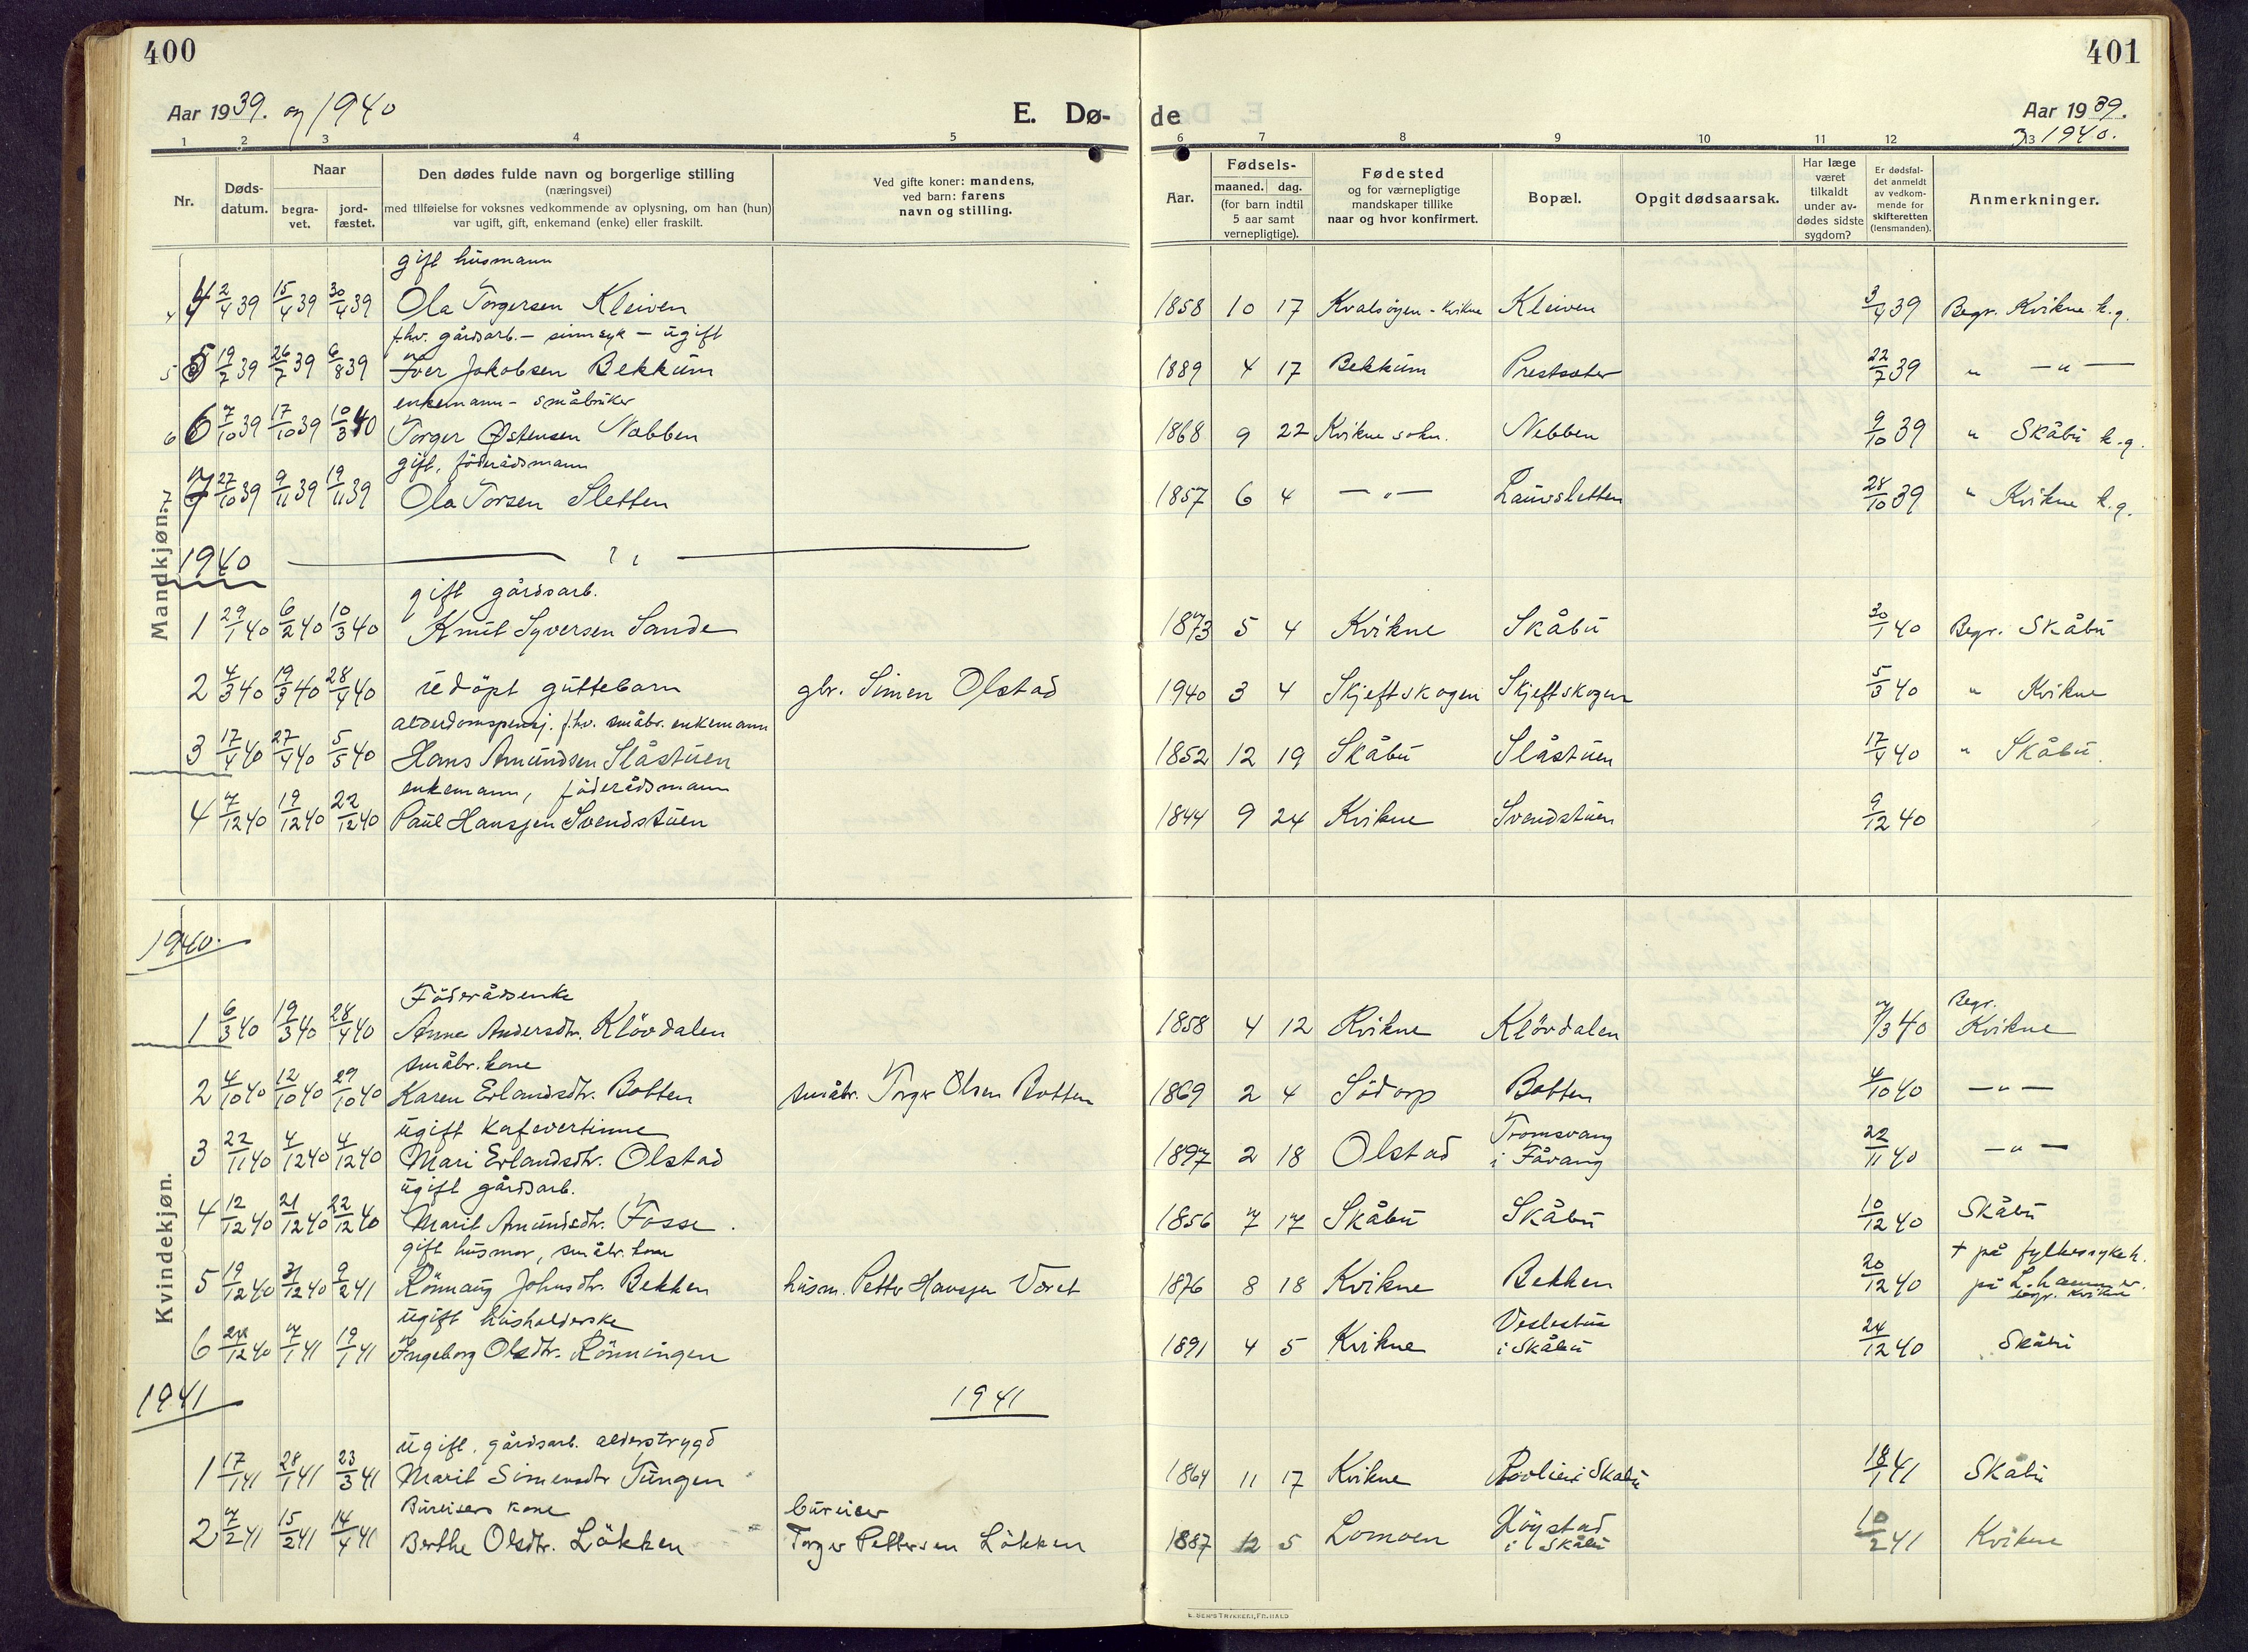 400
401
Aar 1939. og 1940
E. Dø-
de
Aar 1939.
1940.
1 2 3 4 5 6 7 8 9 10 11 12 13
Nr.
Døds-datum.
Naar
begra-vet.
jord-fæstet.
Den dødes fulde navn og borgerlige stilling
(næringsvei)
med tilføielse for voksnes vedkommende av oplysning, om han (hun)
var ugift, gift, enkemand (enke) eller fraskilt.
Ved gifte koner: mandens,
ved barn: farens
navn og stilling.
Aar.
Fødsels-
maaned. dag.
(for barn indtil
5 aar samt
vernepligtige).
Fødested
og for værnepligtige
mandskaper tillike
naar og hvor konfirmert.
Bopæl.
Opgit dødsaarsak.
Har læge
været
tilkaldt
under av-
dødes sidste
sygdom?
Er dødsfal-
det anmeldt
av vedkom-
mende for
skifteretten
(lensmanden).
Anmerkninger.
Mandkjøn.
gift husmann
4 4 2/4 39 15/4 39 30/4 39 Ola Torgersen Kleiven 1858 10 17 Kvalsøyen - Kvikne Kleiven 3/4 39 Begr. Kvikne k.g.
fhv. gårdsarb. - sinnsyk - ugift
5 5 19/7 39 26/7 39 6/8 39 Iver Jakobsen Bekkum 1889 4 17 Bekkum Prestsæter 22/7 39 " — " —
enkemann - småbruker
6 6 7/10 39 17/10 39 10/3 40 Torger Østensen Nebben 1868 9 22 Kvikne sokn. Nebben 9/10 39 " Skåbu k.g.
gift, föderådsmann
7 7 27/10 39 9/11 39 19/11 39 Ola Torsen Sletten 1857 6 4 — " — Lauvsletten 28/10 39 " Kvikne k.g.
1940
gift gårdsarb.
1 29/1 40 6/2 40 10/3 40 Knut Syversen Sande 1873 5 4 Kvikne Skåbu 30/1 40 Begr. Skåbu
2 4/3 40 19/3 40 28/4 40 udöpt guttebarn gbr. Simen Olstad 1940 3 4 Skjeftskogen Skjeftskogen 5/3 40 " Kvikne
alderdomspensj. fhv. småbr. enkemann
3 17/4 40 27/4 40 5/5 40 Hans Amundsen Slåstuen 1852 12 19 Skåbu Slåstuen 17/4 40 " Skåbu.
enkemann, föderådsmann
4 7/12 40 19/12 40 22/12 40 Paul Hansen Svendstuen 1844 9 24 Kvikne Svendstuen 9/12 40
Kvindekjøn.
1940.
Föderådsenke
1 6/3 40 19/3 40 28/4 40 Anne Andersdtr. Klövdalen 1858 4 12 Kvikne Klövdalen 7/3 40 Begr. Kvikne
småbr. kone
2 4/10 40 12/10 40 29/10 40 Karen Erlandsdtr. Botten småbr. Torger Olsen Botten 1869 2 4 Södorp Botten 4/10 40 — " —
ugift kafevertinne
3 22/11 40 4/12 40 4/12 40 Mari Erlandsdtr. Olstad 1897 2 18 Olstad Tromsvang i Fåvang 22/11 40 — " —
ugift gårdsarb.
4 12/12 40 21/12 40 22/12 40 Marit Amundsdtr. Fosse. 1856 7 17 Skåbu Skåbu 10/12 40 Skåbu
gift husmor, småbr. kone
5 19/12 40 31/12 40 9/2 41 Rönnaug Johnsdtr. Bekken husm. Petter Hansen Voret 1876 8 18 Kvikne Bekken 20/12 40 + på fylkessykeh. på L.hammer. begr. Kvikne
ugift husholderske
6 24/12 40 7/1 41 19/1 41 Ingeborg Olsdtr. Rönningen 1891 4 5 Kvikne Veslestue i Skåbu 24/12 40 Skåbu
1941
1941
ugift. gårdsarb. alderstrygd
1 17/1 41 28/1 41 23/3 41 Marit Simensdtr Tungen 1864 11 17 Kvikne i Skåbu 18/1 41 Skåbu
Bureisers kone
bureiser
2 7/2 41 15/2 41 14/4 41 Berthe Olsdtr. Lökken Torger Pettersen Lökken 1887 12 5 Lomoen Höystad i Skåbu 10/2 41 Kvikne